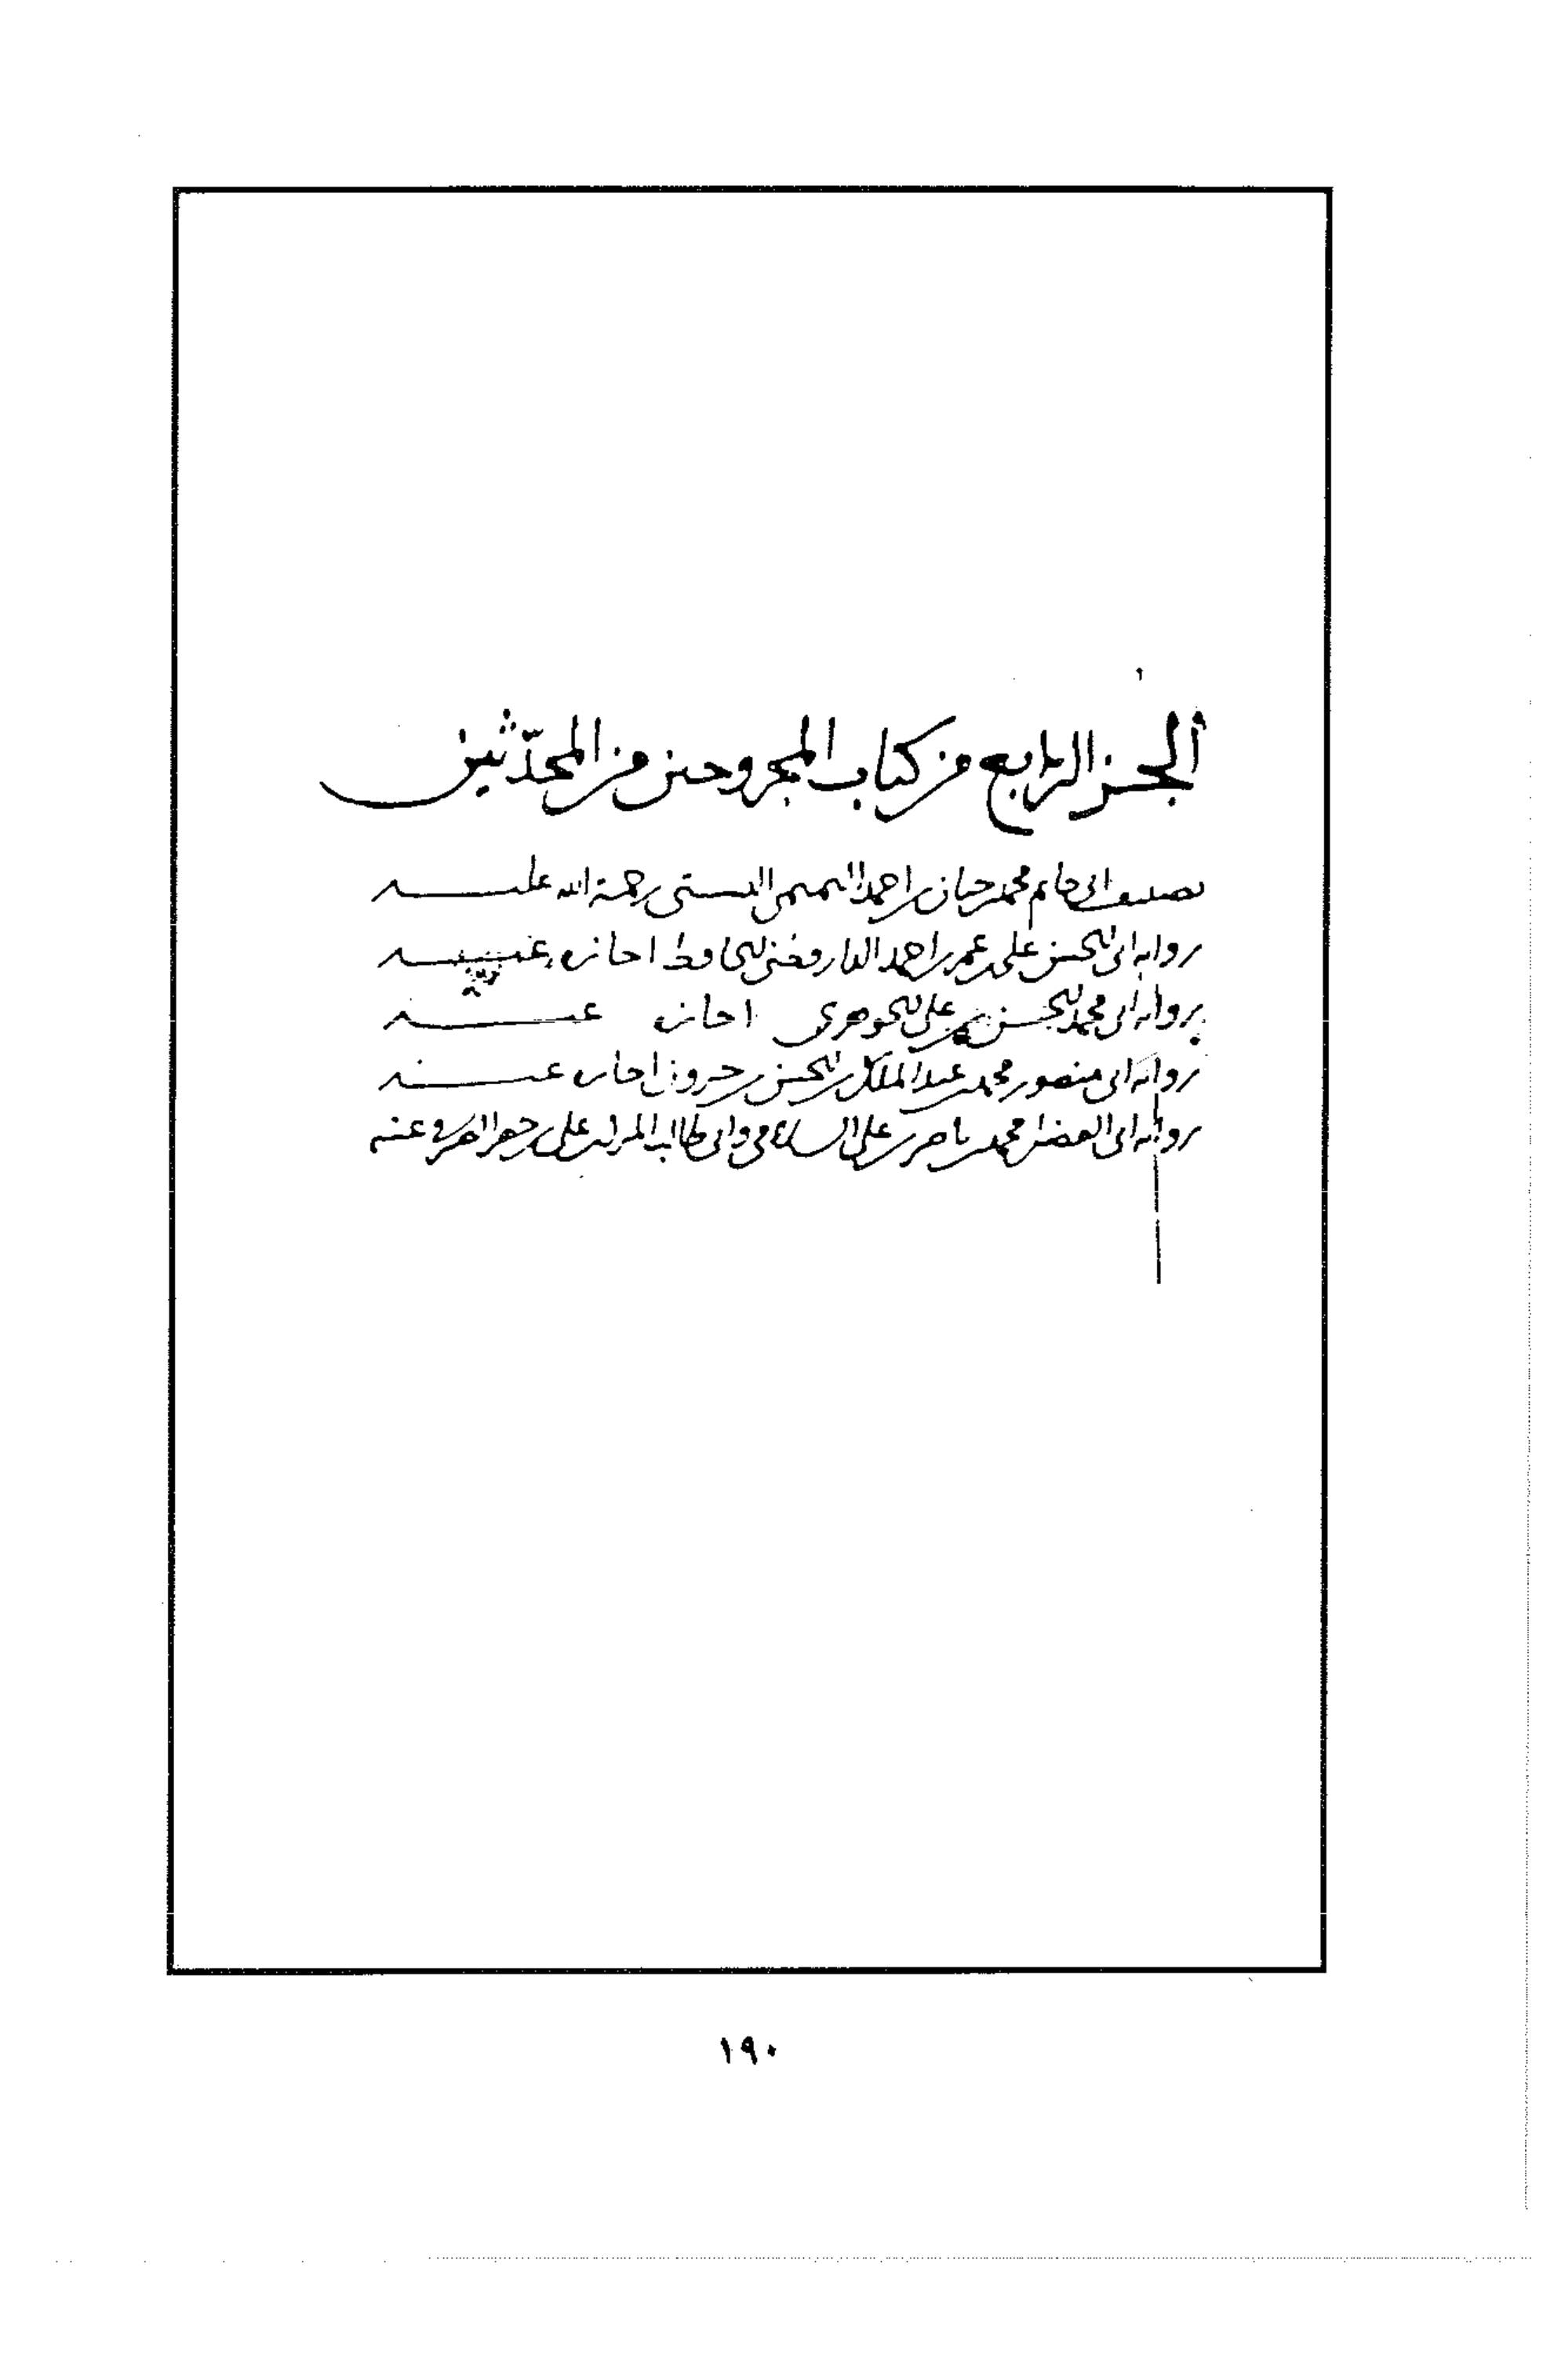 الجزء الرابع من كتاب المجروحين من المحدّثين
تصنيف ابي حاتم محمد بن حبان بن احمد التميمي البستي رحمة الله عليه
رواية ابي الحسن علي بن عمر بن احمد الدارقطني الحافظ اجازة عنه
رواية ابي محمد الحسن بن علي الجوهري اجازة عنه
رواية ابي منصور محمد بن عبد الملك بن الحسن بن خيرون اجازة عنه
رواية ابي الفضل محمد بن ناصر بن علي السلامي وابي طالب المبارك بن علي بن عنه
١٩٠